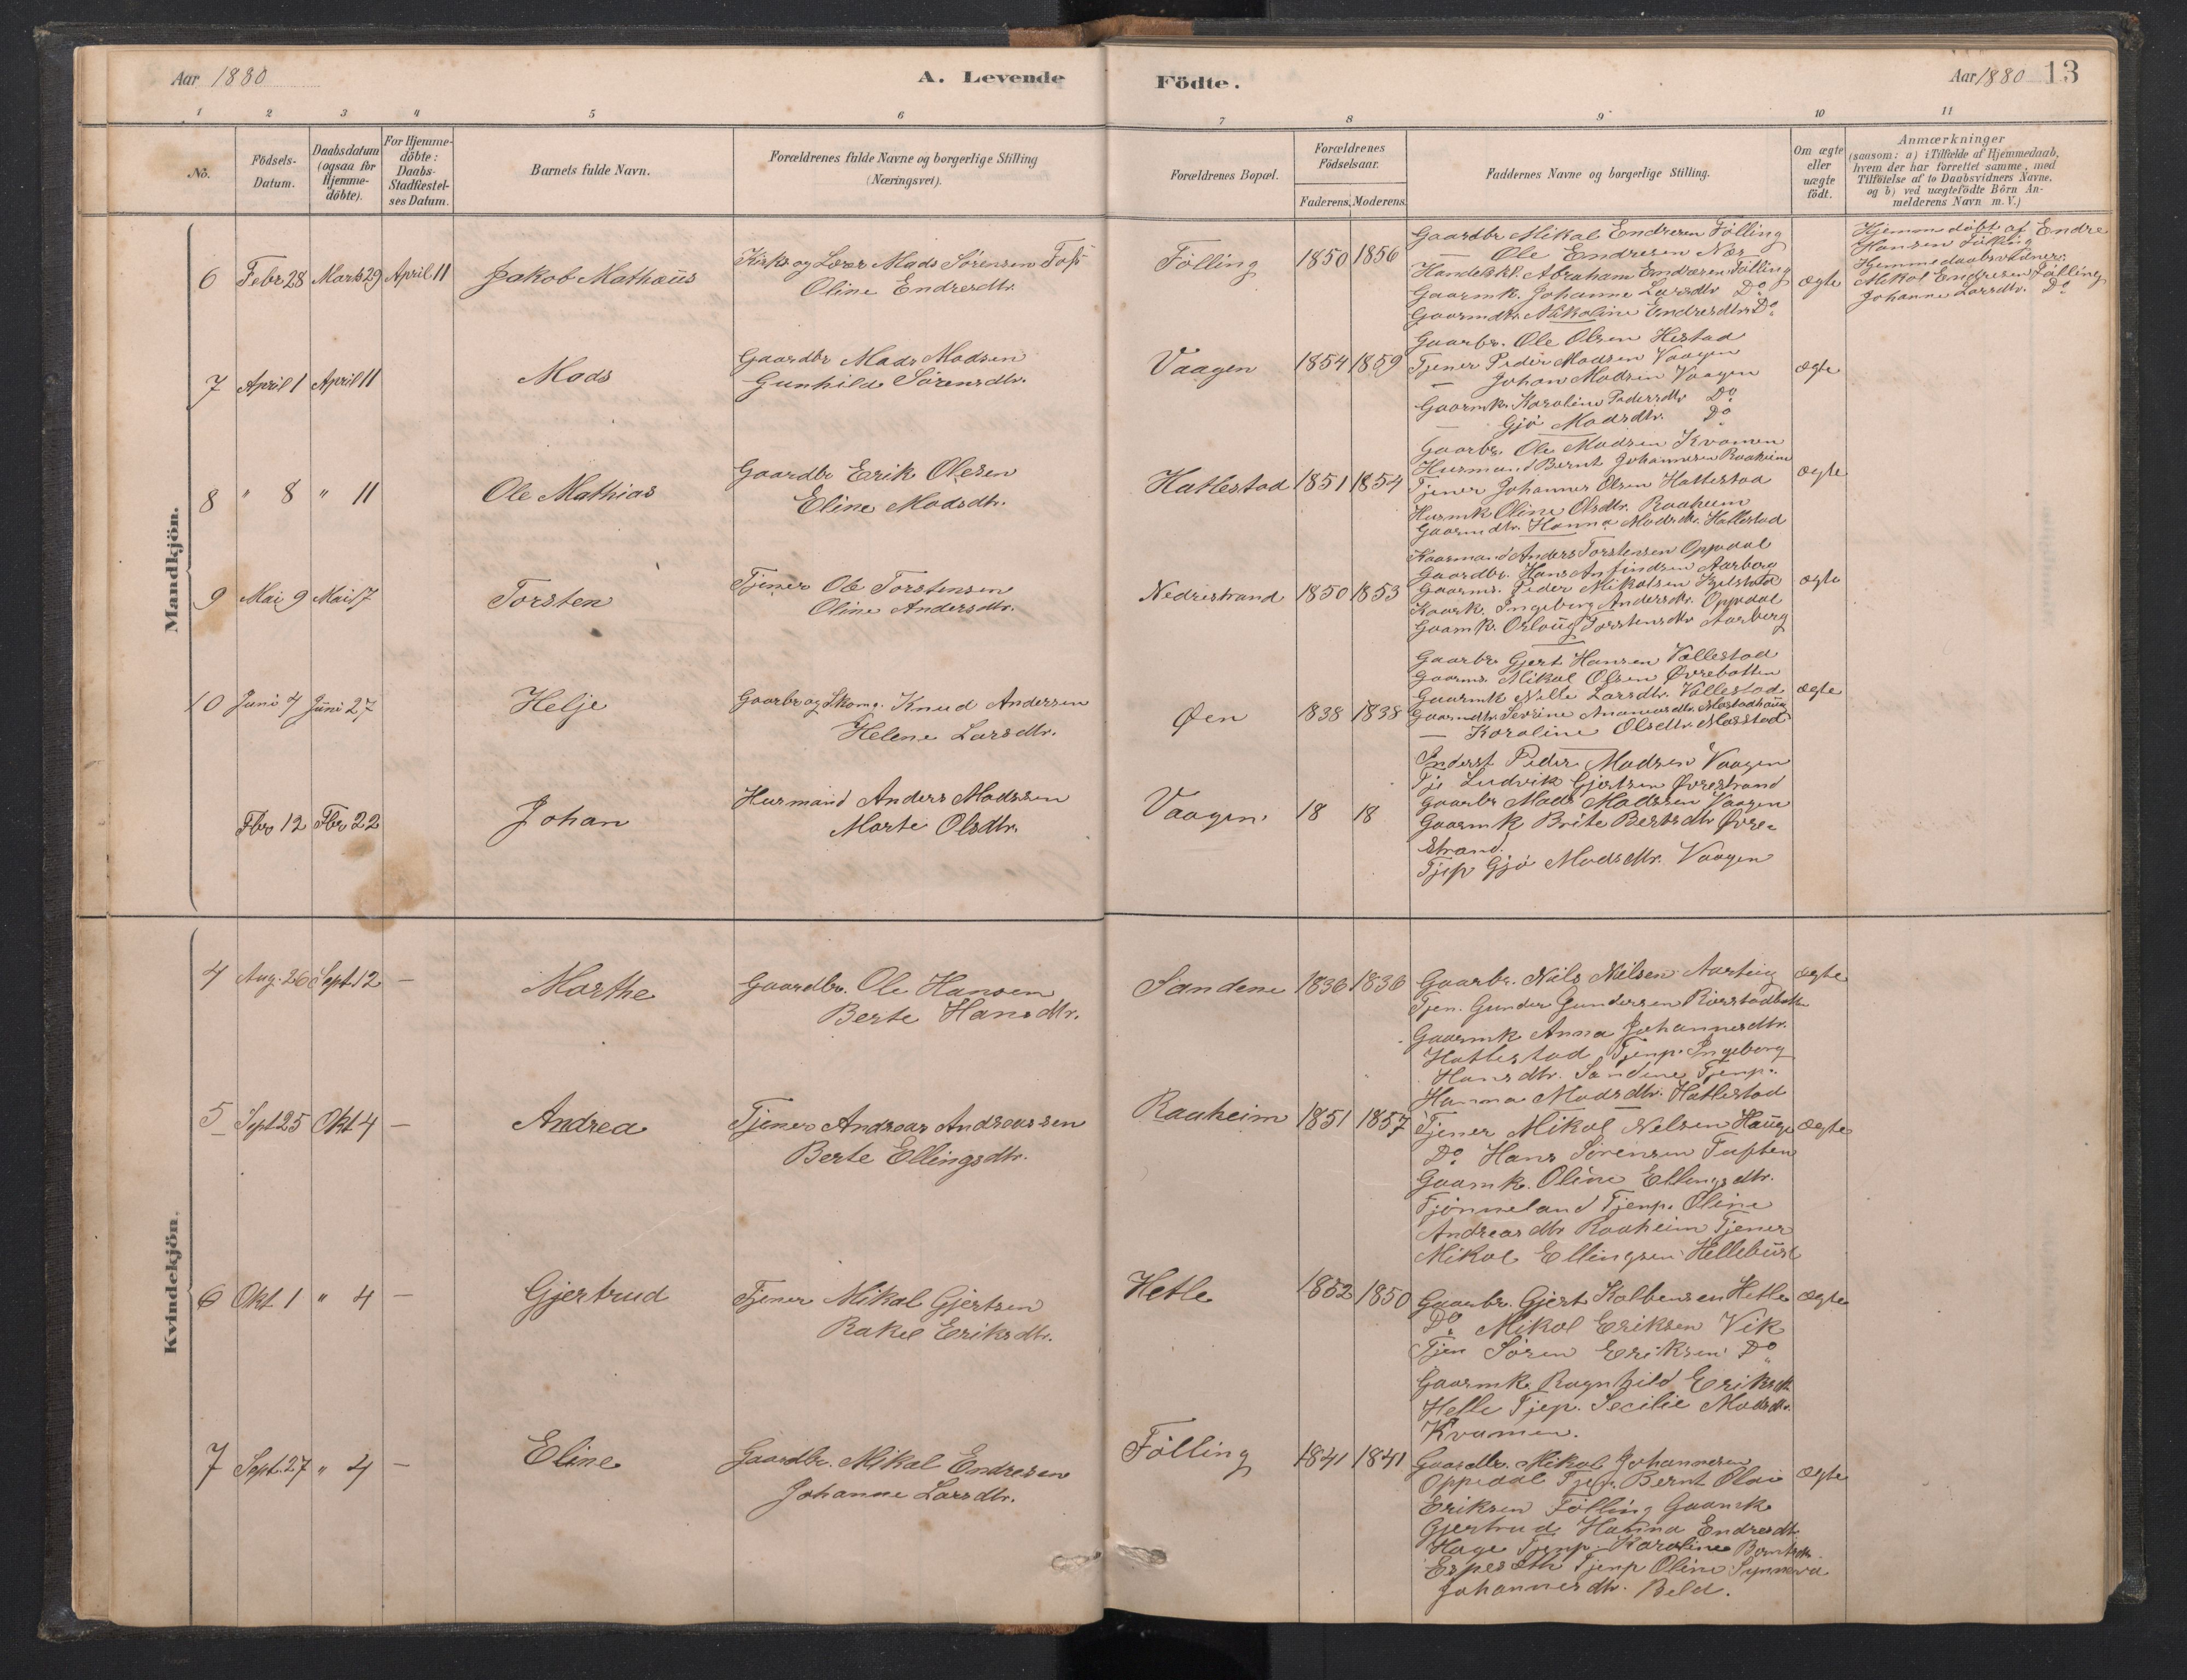 Aar 1880
A. Levende
Födte.
Aar 1880 13
1 2 3 4 5 6 7 8 9 10 11
No.
Födsels-
Datum.
Daabsdatum
(ogsaa för
Hjemme-
döbte).
For Hjemme-
döbte:
Daabs-
Stadfæstel-
ses Datum.
Barnets fulde Navn.
Forældrenes fulde Navne og borgerlige Stilling
(Næringsvei).
Forældrenes Bopæl.
Forældrenes
Födselsaar.
Faderens. Moderens.
Faddernes Navne og borgerlige Stilling.
Om ægte
eller
uægte
födt.
Anmærkninger
(saasom: a) i Tilfælde af Hjemmedaab,
hvem der har forrettet samme, med
Tilföielse af to Daabsvidners Navne,
og b) ved uægtefödte Börn An-
melderens Navn m. V.)
Mandkjön.
6 Febr 28 Marts 29 April 11 Jakob Mathæus
Kirks og Lærer Mads Sörensen
Oline Endresdtr.
Fölling 1850 1856
Gaardbr Mikal Endresen Fölling
— Ole Endresen Nes
Handelskl. Abraham Endresen Fölling
Gaarmk. Johanne Larsdtr Do
Gaarmdtr. Nikoline Endresdtr Do
ægte
Hjemmedöbt af Endre
Hansen Fölling
Hjemmedaabsvidner:
Mikal Endresen Fölling
Johanne Larsdtr. Do
7 April 1 April 11 Mads
Gaardbr Mads Madsen
Gunhilde Sörensdtr.
Vaagen 1854 1859
Gaarbr. Ole Olsen Hestad
Tjener Peder Madsen Vaagen
— Johan Madsen Vaagen
Gaarmk. Karoline Pedersdtr Do
— Gjö Madsdtr. Do
ægte
8 " 8 " 11 Ole Mathias
Gaardbr Erik Olesen
Eline Madsdtr.
Hatlestad 1851 1854
Gaarbr Ole Madsen Kvamen
Husmand Bernt Johannesen Raaheim
Tjener Johannes Olsen Hatlestad
Husmk Oline Olsdtr. Raaheim
Gaarmdtr. Hanna Madsdtr. Hatlestad
ægte
9 Mai 9 Mai 17 Torsten
Tjener Ole Torstensen
Oline Andersdtr.
Nedrestrand 1850 1853
Kaarmand Anders Torstensen Oppdal
Gaardbr. Hans Anfindsen Aarberg
Gaarms. Peder Mikalsen
Kaark. Ingeborg Andersdtr. Oppdal
Gaamk. Torstensdtr Aarberg
ægte
10 Juni 7 Juni 27 Helje
Gaarbr og Skoma. Knud Andersen
Helene Larsdtr.
Øen 1838 1838
Gaarbr Gjert Hansen Vallestad
Gaarms. Mikal Olsen Øvrebotten
Gaarmk Nille Larsdtr. Vallestad
Gaarmdtr. Severine Ananiasdtr.
— Karoline Olsdtr.
ægte
Fbr 12 Fbr 22 Johan
Husmand Anders Madssen
Marte Olsdtr.
Vaagen. 18 18
Inderst Peder Madsen Vaagen
Tje Ludvik Gjertsen Øvrestrand
Gaarbr Mads Madssen Vaagen
Gaarmk Brite Bertsdtr Øvre-
strand.
Tjep Gjö Madsdtr. Vaagen
Kvindekjön.
4 Aug. 26 Sept. 12 — Marthe
Gaardbr. Ole Hansen
Berte Hansdtr.
Sandene 1836 1836
Gaarbr. Nils Nilsen
Tjen. Gunder Gundersen
Gaarmk Anna Johannesdtr.
Hatlestad Tjenp. Ingeborg
Hansdtr. Sandene Tjenp.
Hanna Madsdtr. Hatlestad
ægte
5 Sept 25 Okt 4 — Andrea
Tjener Andreas Andreassen
Berte Ellingsdtr.
Raaheim 1851 1857
Tjener Mikal Nelsen Hauge
Do Hans Sörensen Tuften
Gaamk. Oline Ellingsdtr.
Fjönneland Tjenp. Oline
Andreasdtr Raaheim Tjener
Mikal Ellingsen Hellebust
ægte
6 Okt 1 " 4 — Gjertrud
Tjener Mikal Gjertsen
Rakel Eriksdtr.
Hetle 1852 1850
Gaarbr. Gjert Kolbensen Hetle
Do Mikal Eriksen Vik
Tjen Sören Eriksen Do
Gaarmk. Ragnhild Eriksdt
Helle Tjep. Secilie Madsdtr.
Kvamen.
ægte
7 Sept. 27 " 4 — Eline
Gaardbr. Mikal Endresen
Johanne Larsdtr.
Fölling 1841 1841
Gaardbr. Mikal Johannesen
Oppedal Tje. Bernt Olai
Eriksen Fölling Gaamk
Gjertrud Hanna Endresdtr
Hage Tjenp. Karoline Berntsdtr.
Espeseth Tjenp Oline Synneva
Johannesdtr. Beld.
ægte